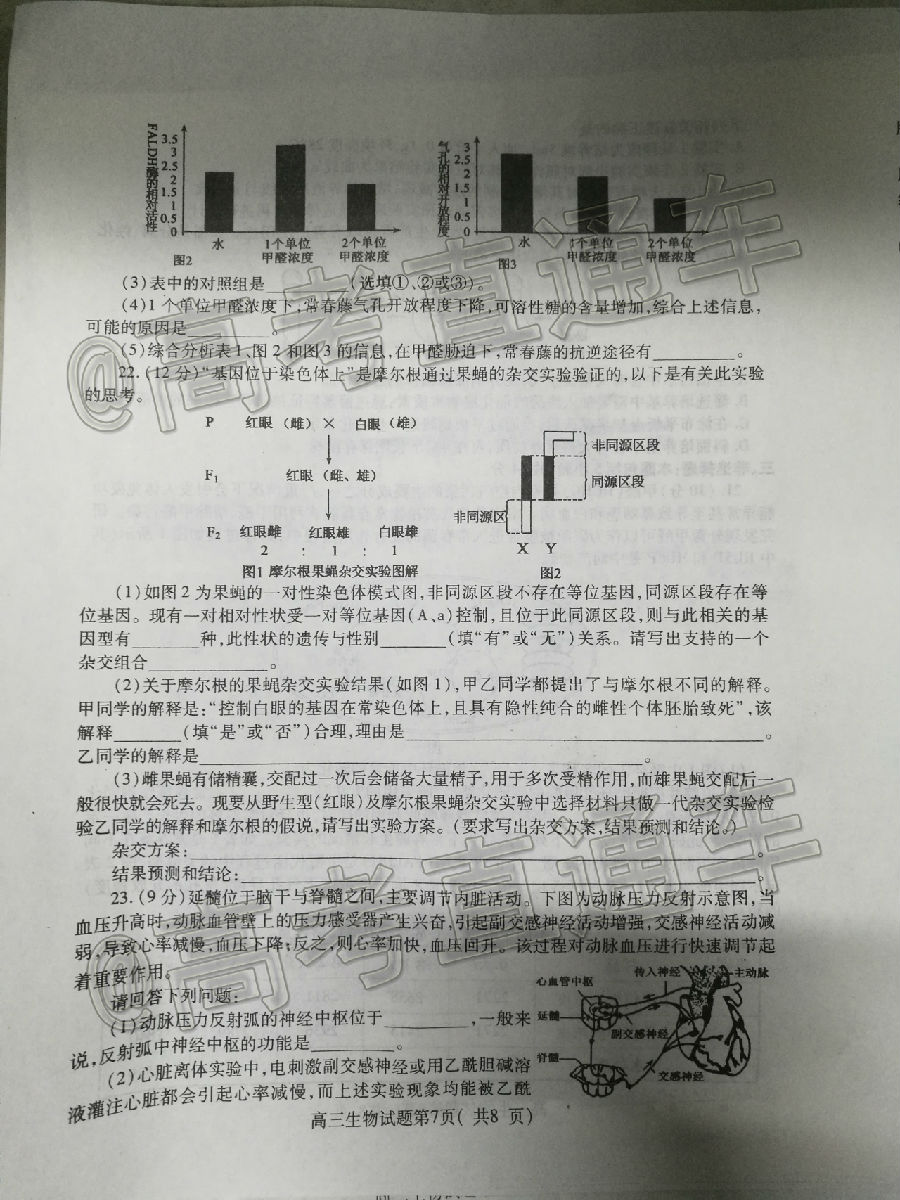 FALDH酶的相对活性
3.5
3
2.5
2
1.5
1
0.5
0
水 1个单位 2个单位
甲醛浓度 甲醛浓度
图2
气孔的相对开放程度
3
2.5
2
1.5
1
0.5
0
水 1个单位 2个单位
甲醛浓度 甲醛浓度
图3
(3)表中的对照组是________(选填①、②或③)。
(4)1个单位甲醛浓度下,常春藤气孔开放程度下降,可溶性糖的含量增加,综合上述信息,
可能的原因是________。
(5)综合分析表1、图2和图3的信息,在甲醛胁迫下,常春藤的抗逆途径有________。
22.(12分)“基因位于染色体上”是摩尔根通过果蝇的杂交实验验证的,以下是有关此实验
的思考。
P 红眼(雌) × 白眼(雄)
F1 红眼(雌、雄)
F2 红眼雌 红眼雄 白眼雄
2 : 1 : 1
图1 摩尔根果蝇杂交实验图解
非同源区段
同源区段
非同源区
X Y
图2
(1)如图2为果蝇的一对性染色体模式图,非同源区段不存在等位基因,同源区段存在等
位基因。现有一对相对性状受一对等位基因(A、a)控制,且位于此同源区段,则与此相关的基
因型有________种,此性状的遗传与性别________(填“有”或“无”)关系。请写出支持的一个
杂交组合________。
(2)关于摩尔根的果蝇杂交实验结果(如图1),甲乙同学都提出了与摩尔根不同的解释。
甲同学的解释是:“控制白眼的基因在常染色体上,且具有隐性纯合的雌性个体胚胎致死”,该
解释________(填“是”或“否”)合理,理由是________。
乙同学的解释是________。
(3)雌果蝇有储精囊,交配过一次后会储备大量精子,用于多次受精作用,而雄果蝇交配后一
般很快就会死去。现要从野生型(红眼)及摩尔根果蝇杂交实验中选择材料只做一代杂交实验检
验乙同学的解释和摩尔根的假说,请写出实验方案。(要求写出杂交方案,结果预测和结论。)
杂交方案:________。
结果预测和结论:________。
23.(9分)延髓位于脑干与脊髓之间,主要调节内脏活动。下图为动脉压力反射示意图,当
血压升高时,动脉血管壁上的压力感受器产生兴奋,引起副交感神经活动增强,交感神经活动减
弱,导致心率减慢,血压下降;反之,则心率加快,血压回升。该过程对动脉血压进行快速调节起
着重要作用。
请回答下列问题:
(1)动脉压力反射弧的神经中枢位于________,一般来
说,反射弧中神经中枢的功能是________。
(2)心脏离体实验中,电刺激副交感神经或用乙酰胆碱溶
液灌注心脏都会引起心率减慢,而上述实验现象均能被乙酰
心血管中枢
传入神经
主动脉
延髓
副交感神经
脊髓
交感神经
高三生物试题第7页( 共8 页)
@高考直通车
@高考直通车